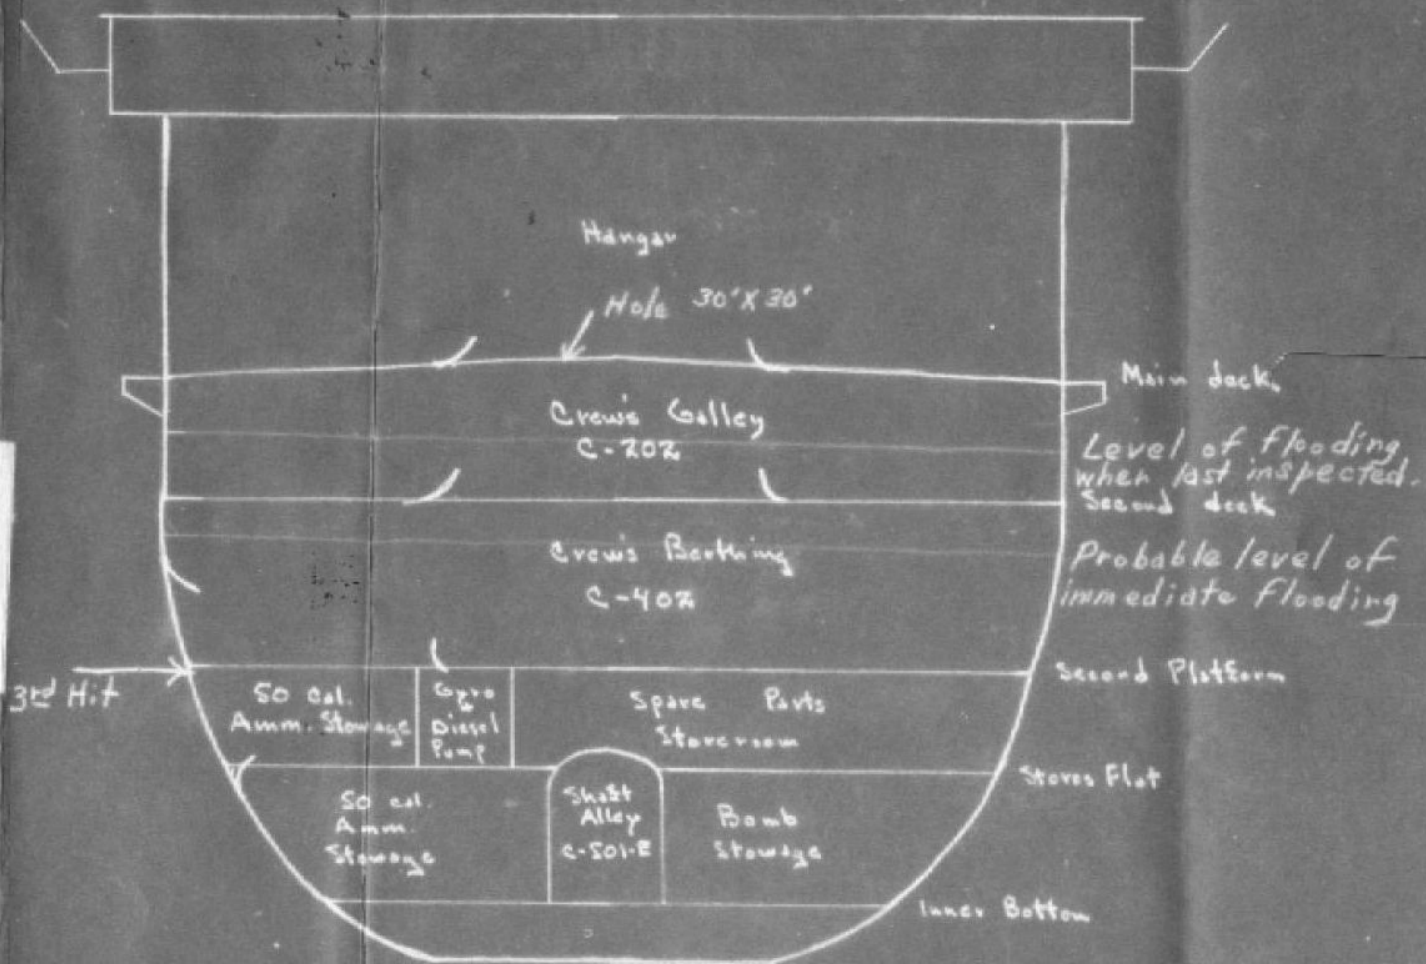 Hangar
Hole 30'X30'
Main deck
Crew's Galley
C-202
Level of flooding
when last inspected.
Second deck
Crew's Berthing
C-402
Probable level of
immediate flooding
3rd Hit
Second Platform
50 Cal.
Amm. Stowage
Gyro
&
Diesel
Pump
Spare Parts
Storeroom
Stores Flat
50 cal.
Amm.
Stowage
Shaft
Alley
C-501-E
Bomb
Stowage
Inner Bottom